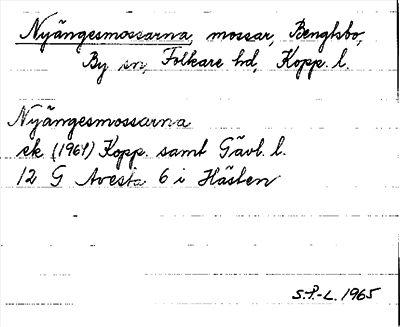 Nyängesmossarna, mossar, Bengtsbo,
By sn, Folkare hd, Kopp. l.
Nyängesmossarna
ek (1961) Kopp. samt Gävl. l.
12 G Avesta 6 i Hästen
S.P-L. 1965